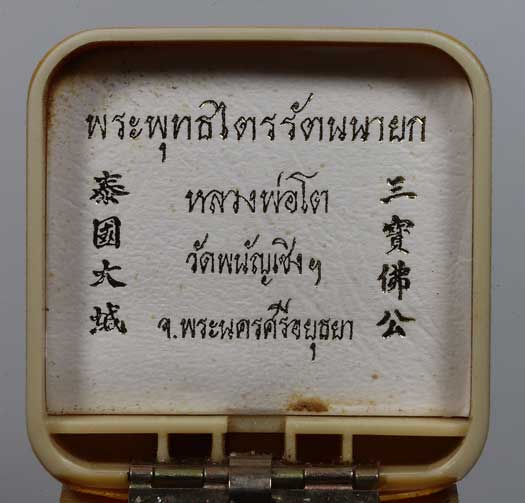 พระพุทธไตรรัตนนายก
หลวงพ่อโต
วัดพนัญเชิงฯ
จ.พระนครศรีอยุธยา
三寶佛公
泰國大城